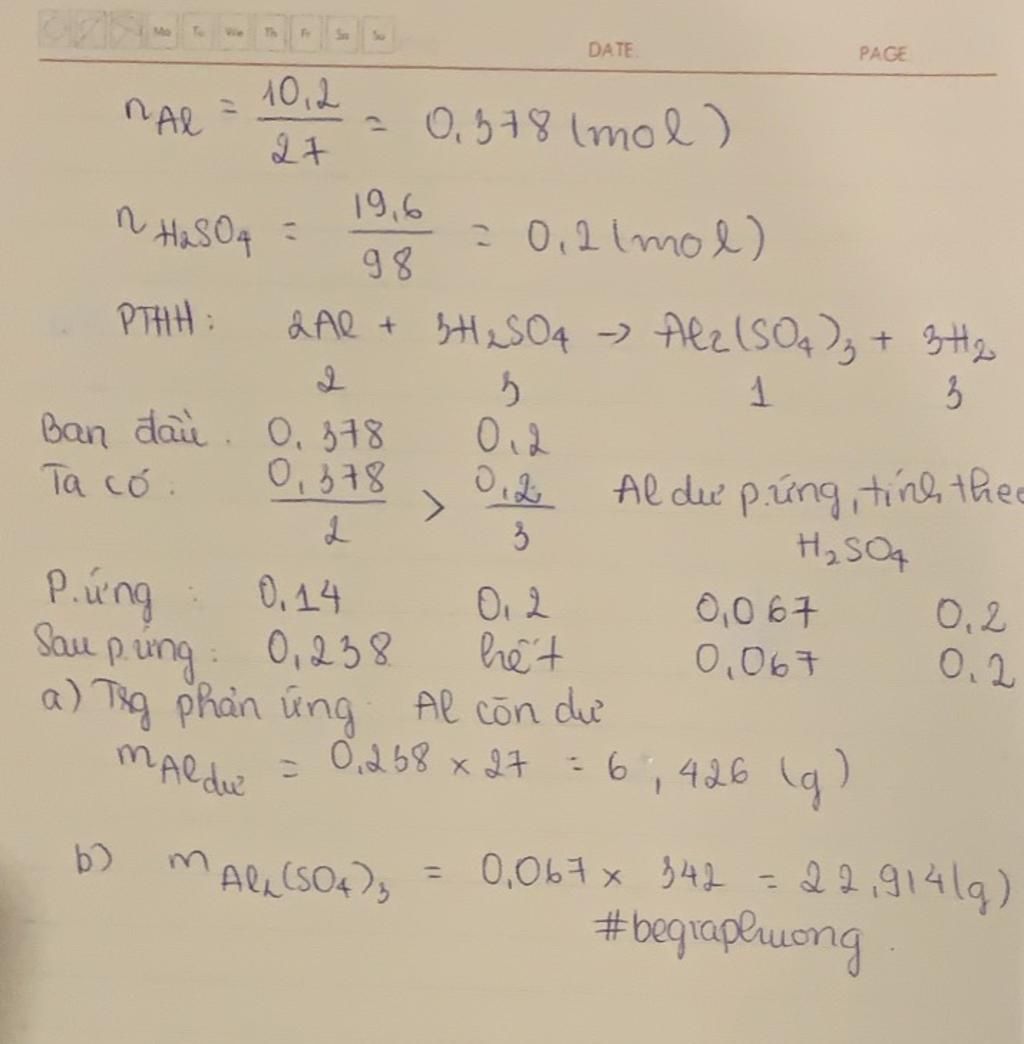 Mo Tu We Th Fr Sa Su
DATE. PAGE
n Al = 10,2/27 = 0,378 (mol)
n H2SO4 = 19,6/98 = 0,2 (mol)
PTHH: 2Al + 3H2SO4 → Al2(SO4)3 + 3H2
2 3 1 3
Ban đầu. 0,378 0,2
Ta có: 0,378/2 > 0,2/3 Al dư p.ứng, tính theo
H2SO4
P.ứng: 0,14 0,2 0,067 0,2
Sau p.ứng: 0,238 hết 0,067 0,2
a) Trg phản ứng Al còn dư
m Al dư = 0,238 × 27 = 6,426 (g)
b) m Al2(SO4)3 = 0,067 × 342 = 22,914 (g)
#begiaphuong.